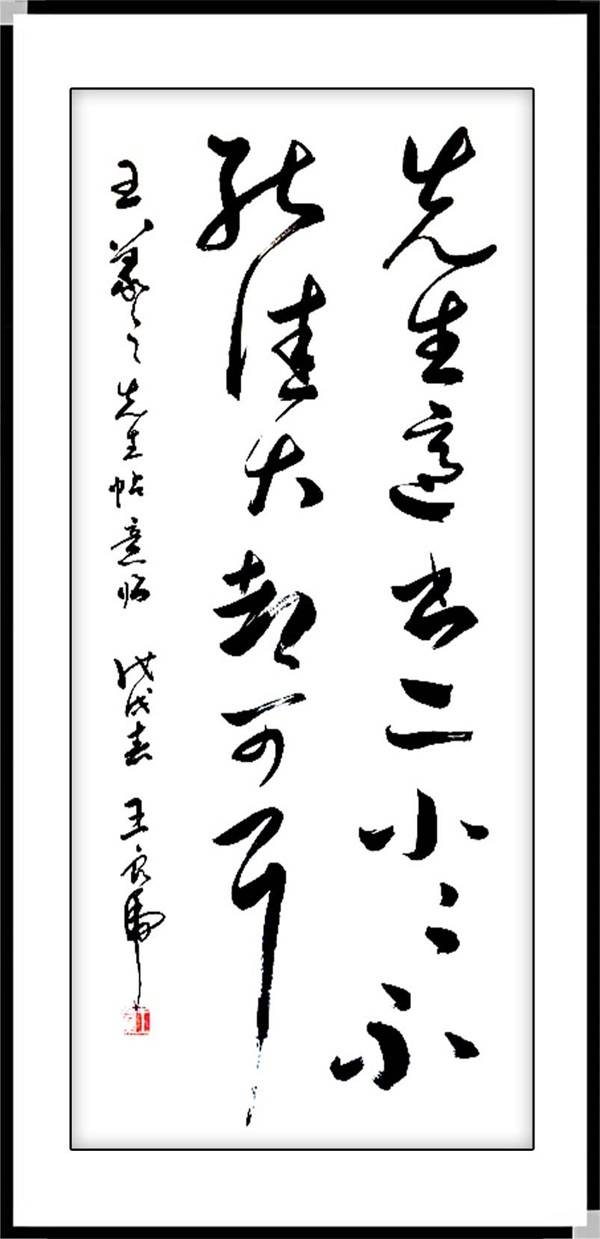 先生適書亦小〻不
能佳大都可耳
王羲之先生帖意临 戊戌春 王良虎